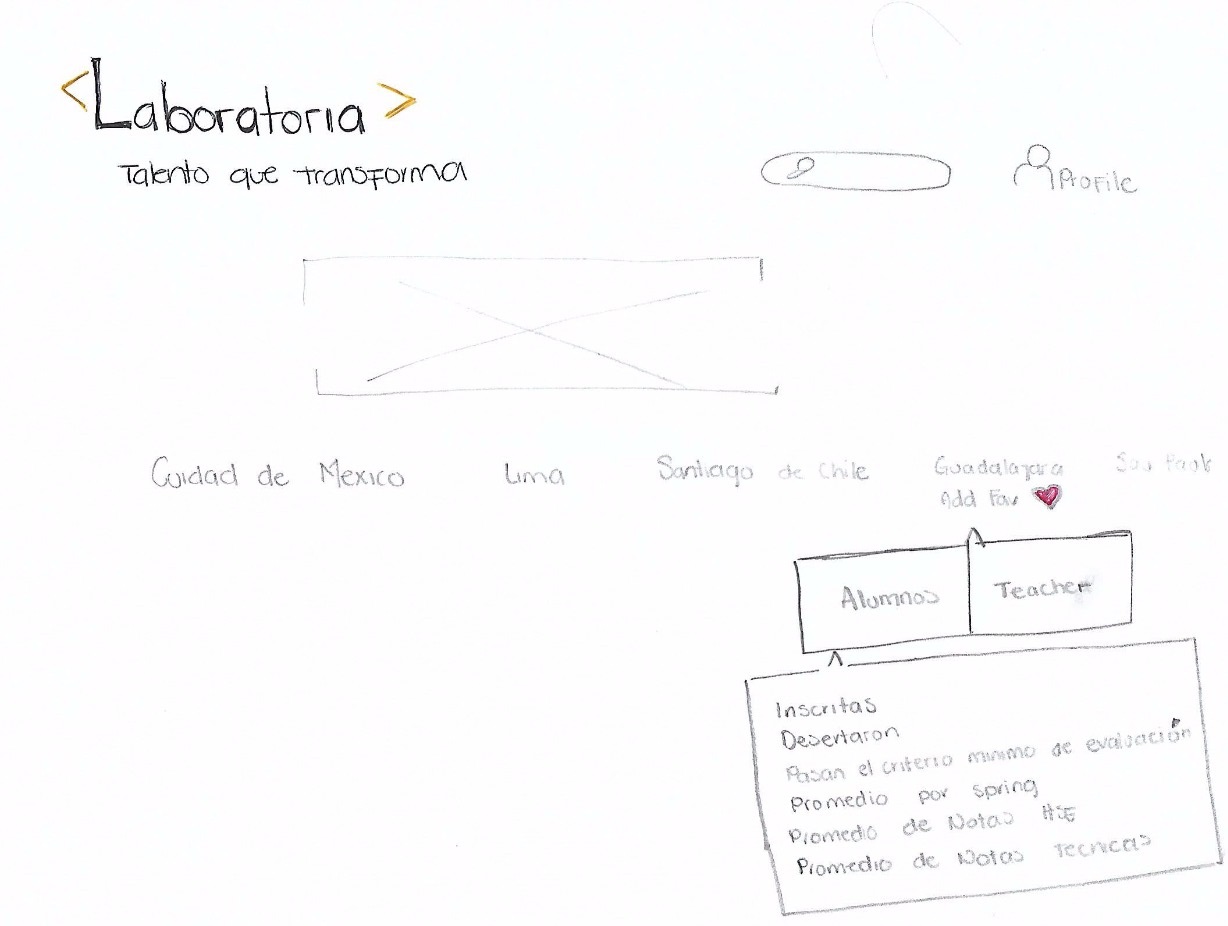 <Laboratoria>
Talento que transforma
Profile
Cuidad de Mexico Lima Santiago de Chile Guadalajara
Add Fav
Alumnos Teacher
Inscritas
Desertaron
Pasan el criterio minimo de evaluación
Promedio por spring
Promedio de Notas HSE
Promedio de Notas Tecnicas